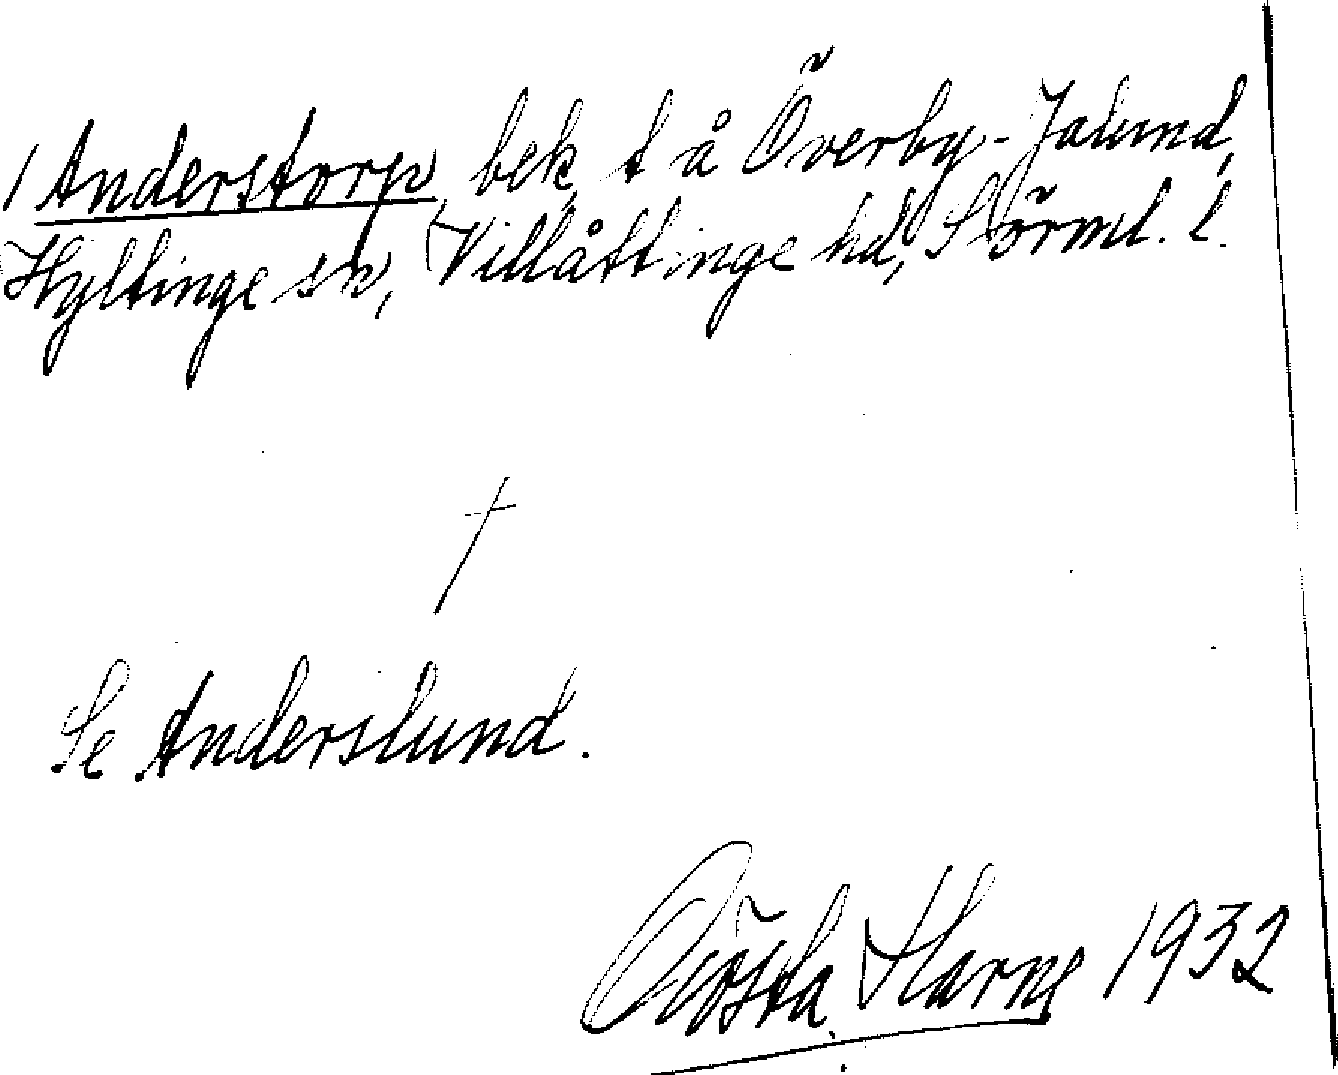 / Anderstorp, bek, t å Överby-Jalund,
Hyltinge sn, Villåttinge hd, Sörml. l.
†
Se Anderslund.
Gösta Harne 1932